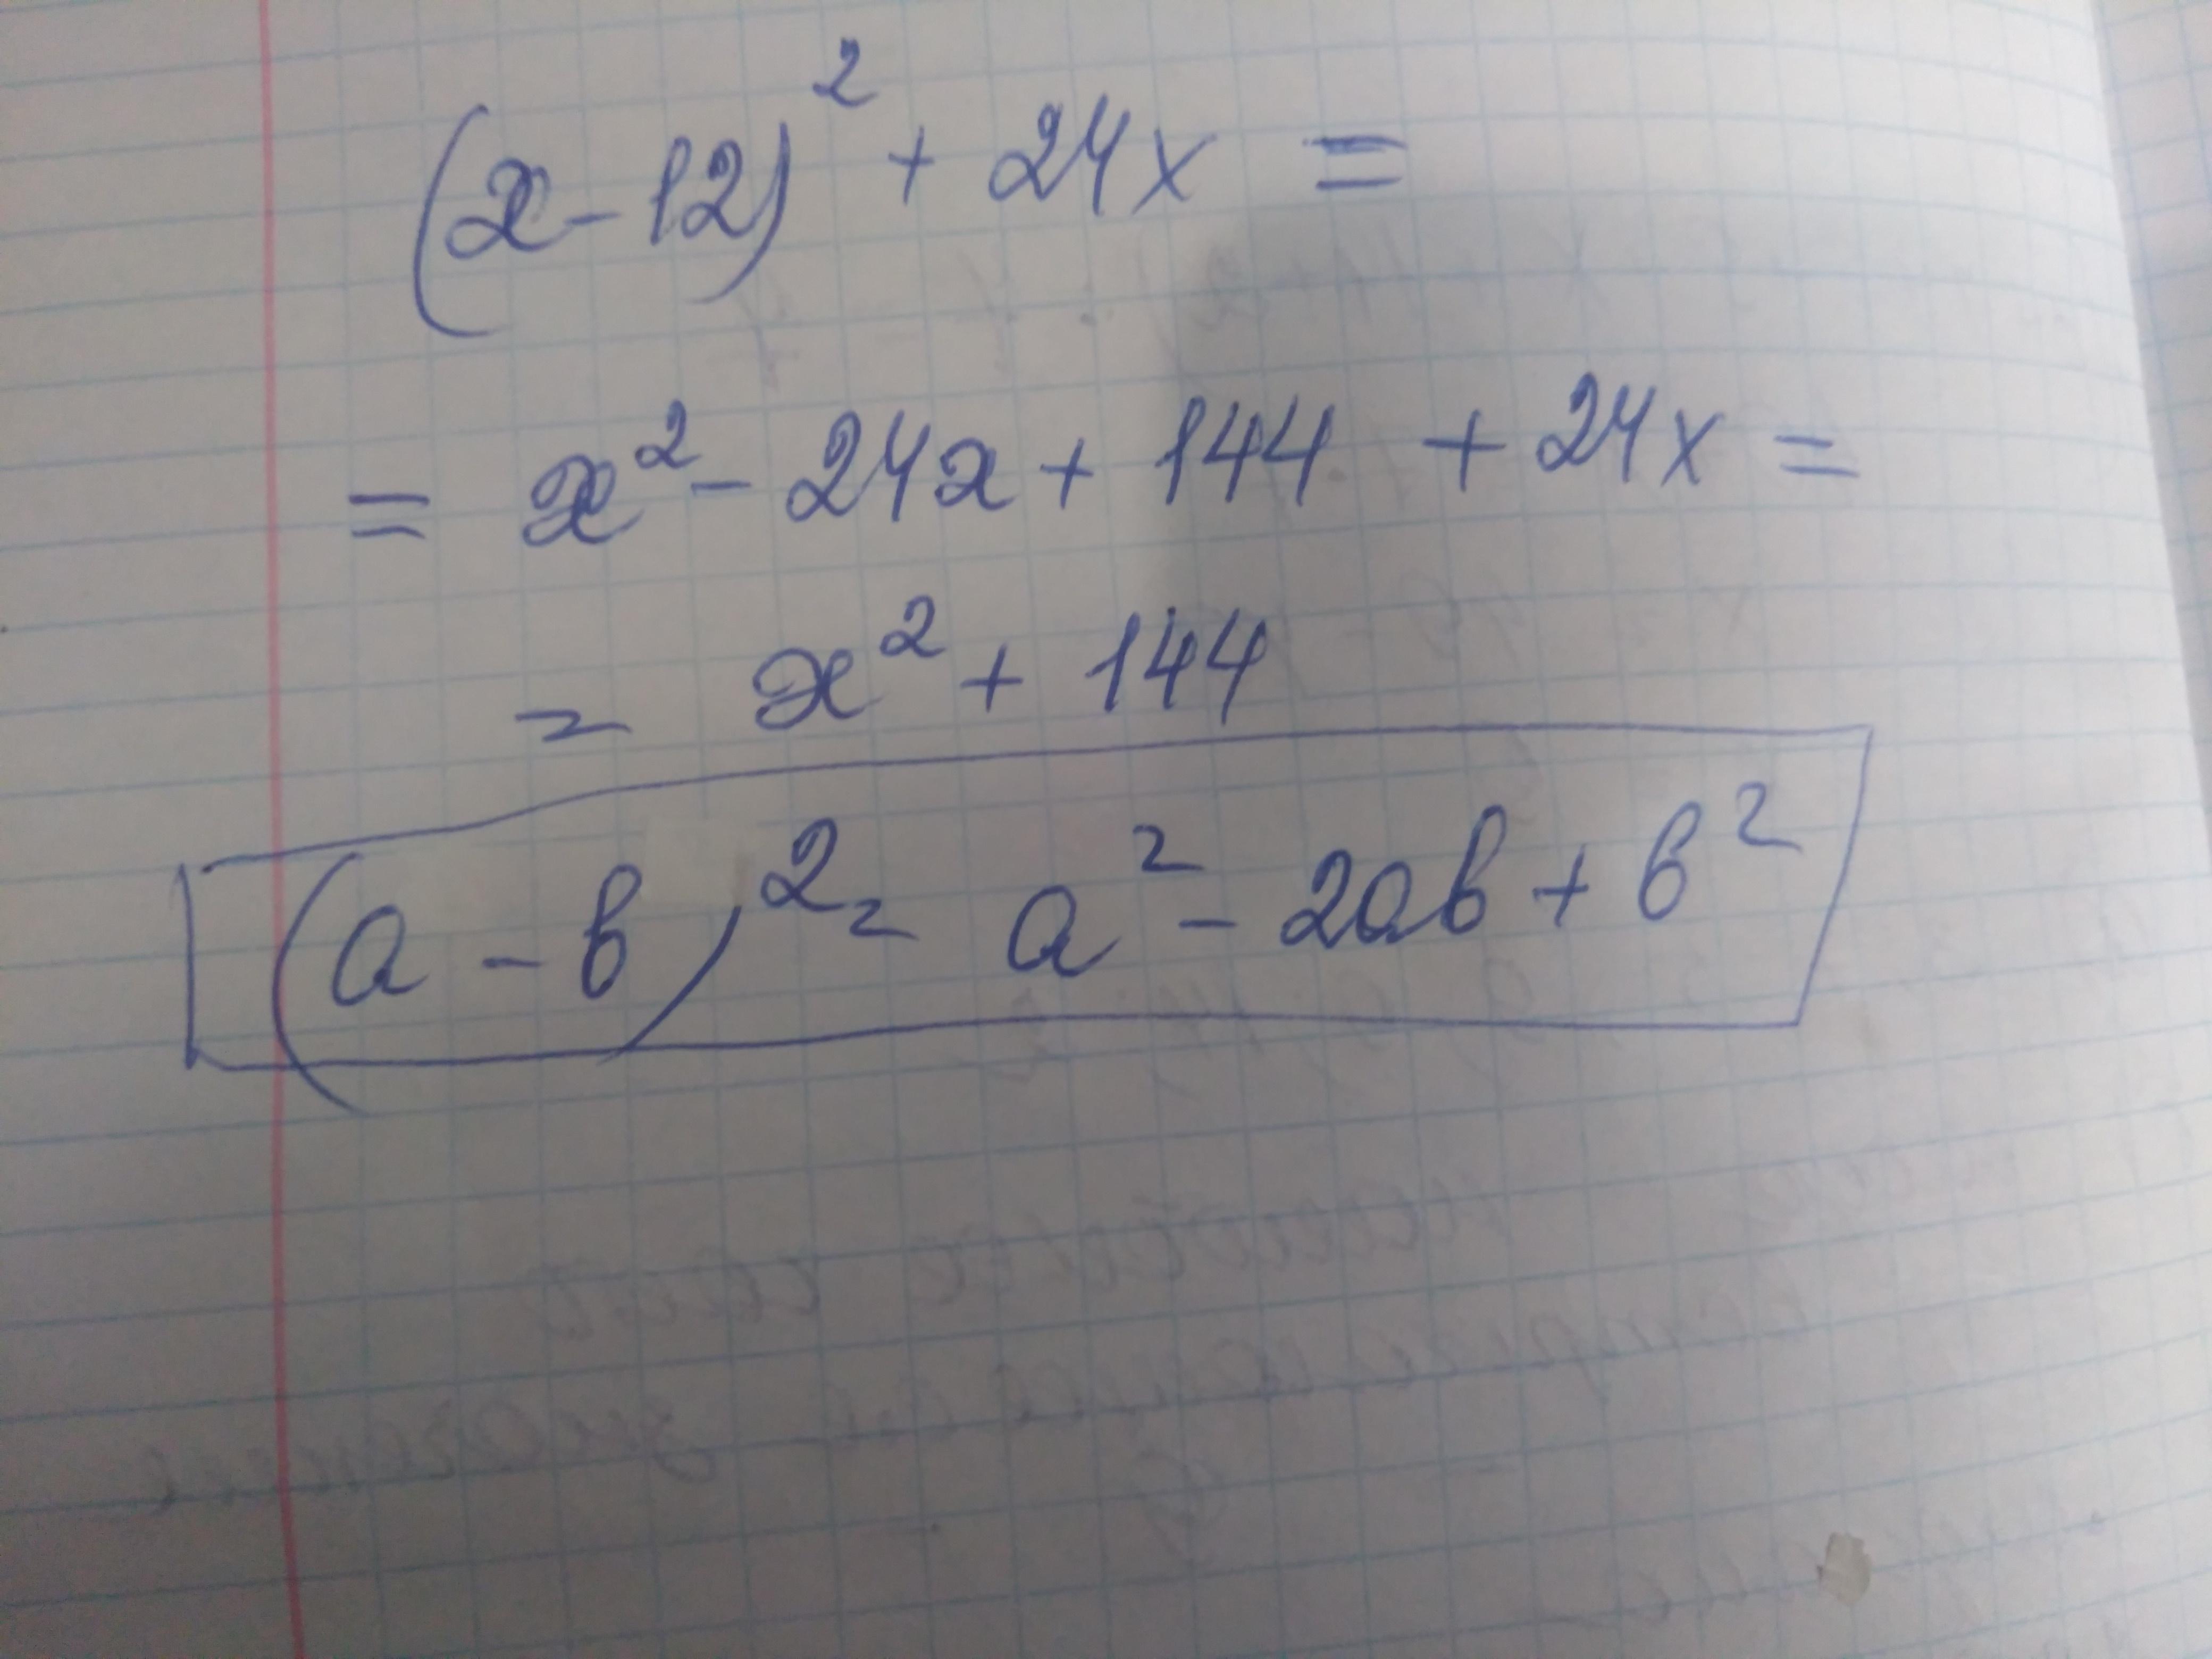 (x-12)² + 24x =
= x² - 24x + 144 + 24x =
= x² + 144
(a - b)² = a² - 2ab + b²